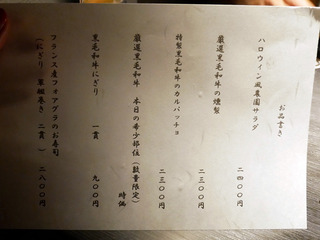 お品書き
ハロウィン風農園サラダ 二四〇〇円
厳選黒毛和牛の燻製 二三〇〇円
特製黒毛和牛のカルパッチョ 二三〇〇円
厳選黒毛和牛 本日の希少部位(数量限定) 時価
黒毛和牛にぎり 一貫 九〇〇円
フランス産フォアグラのお寿司
(にぎり 軍艦巻き 二貫 ) 二八〇〇円